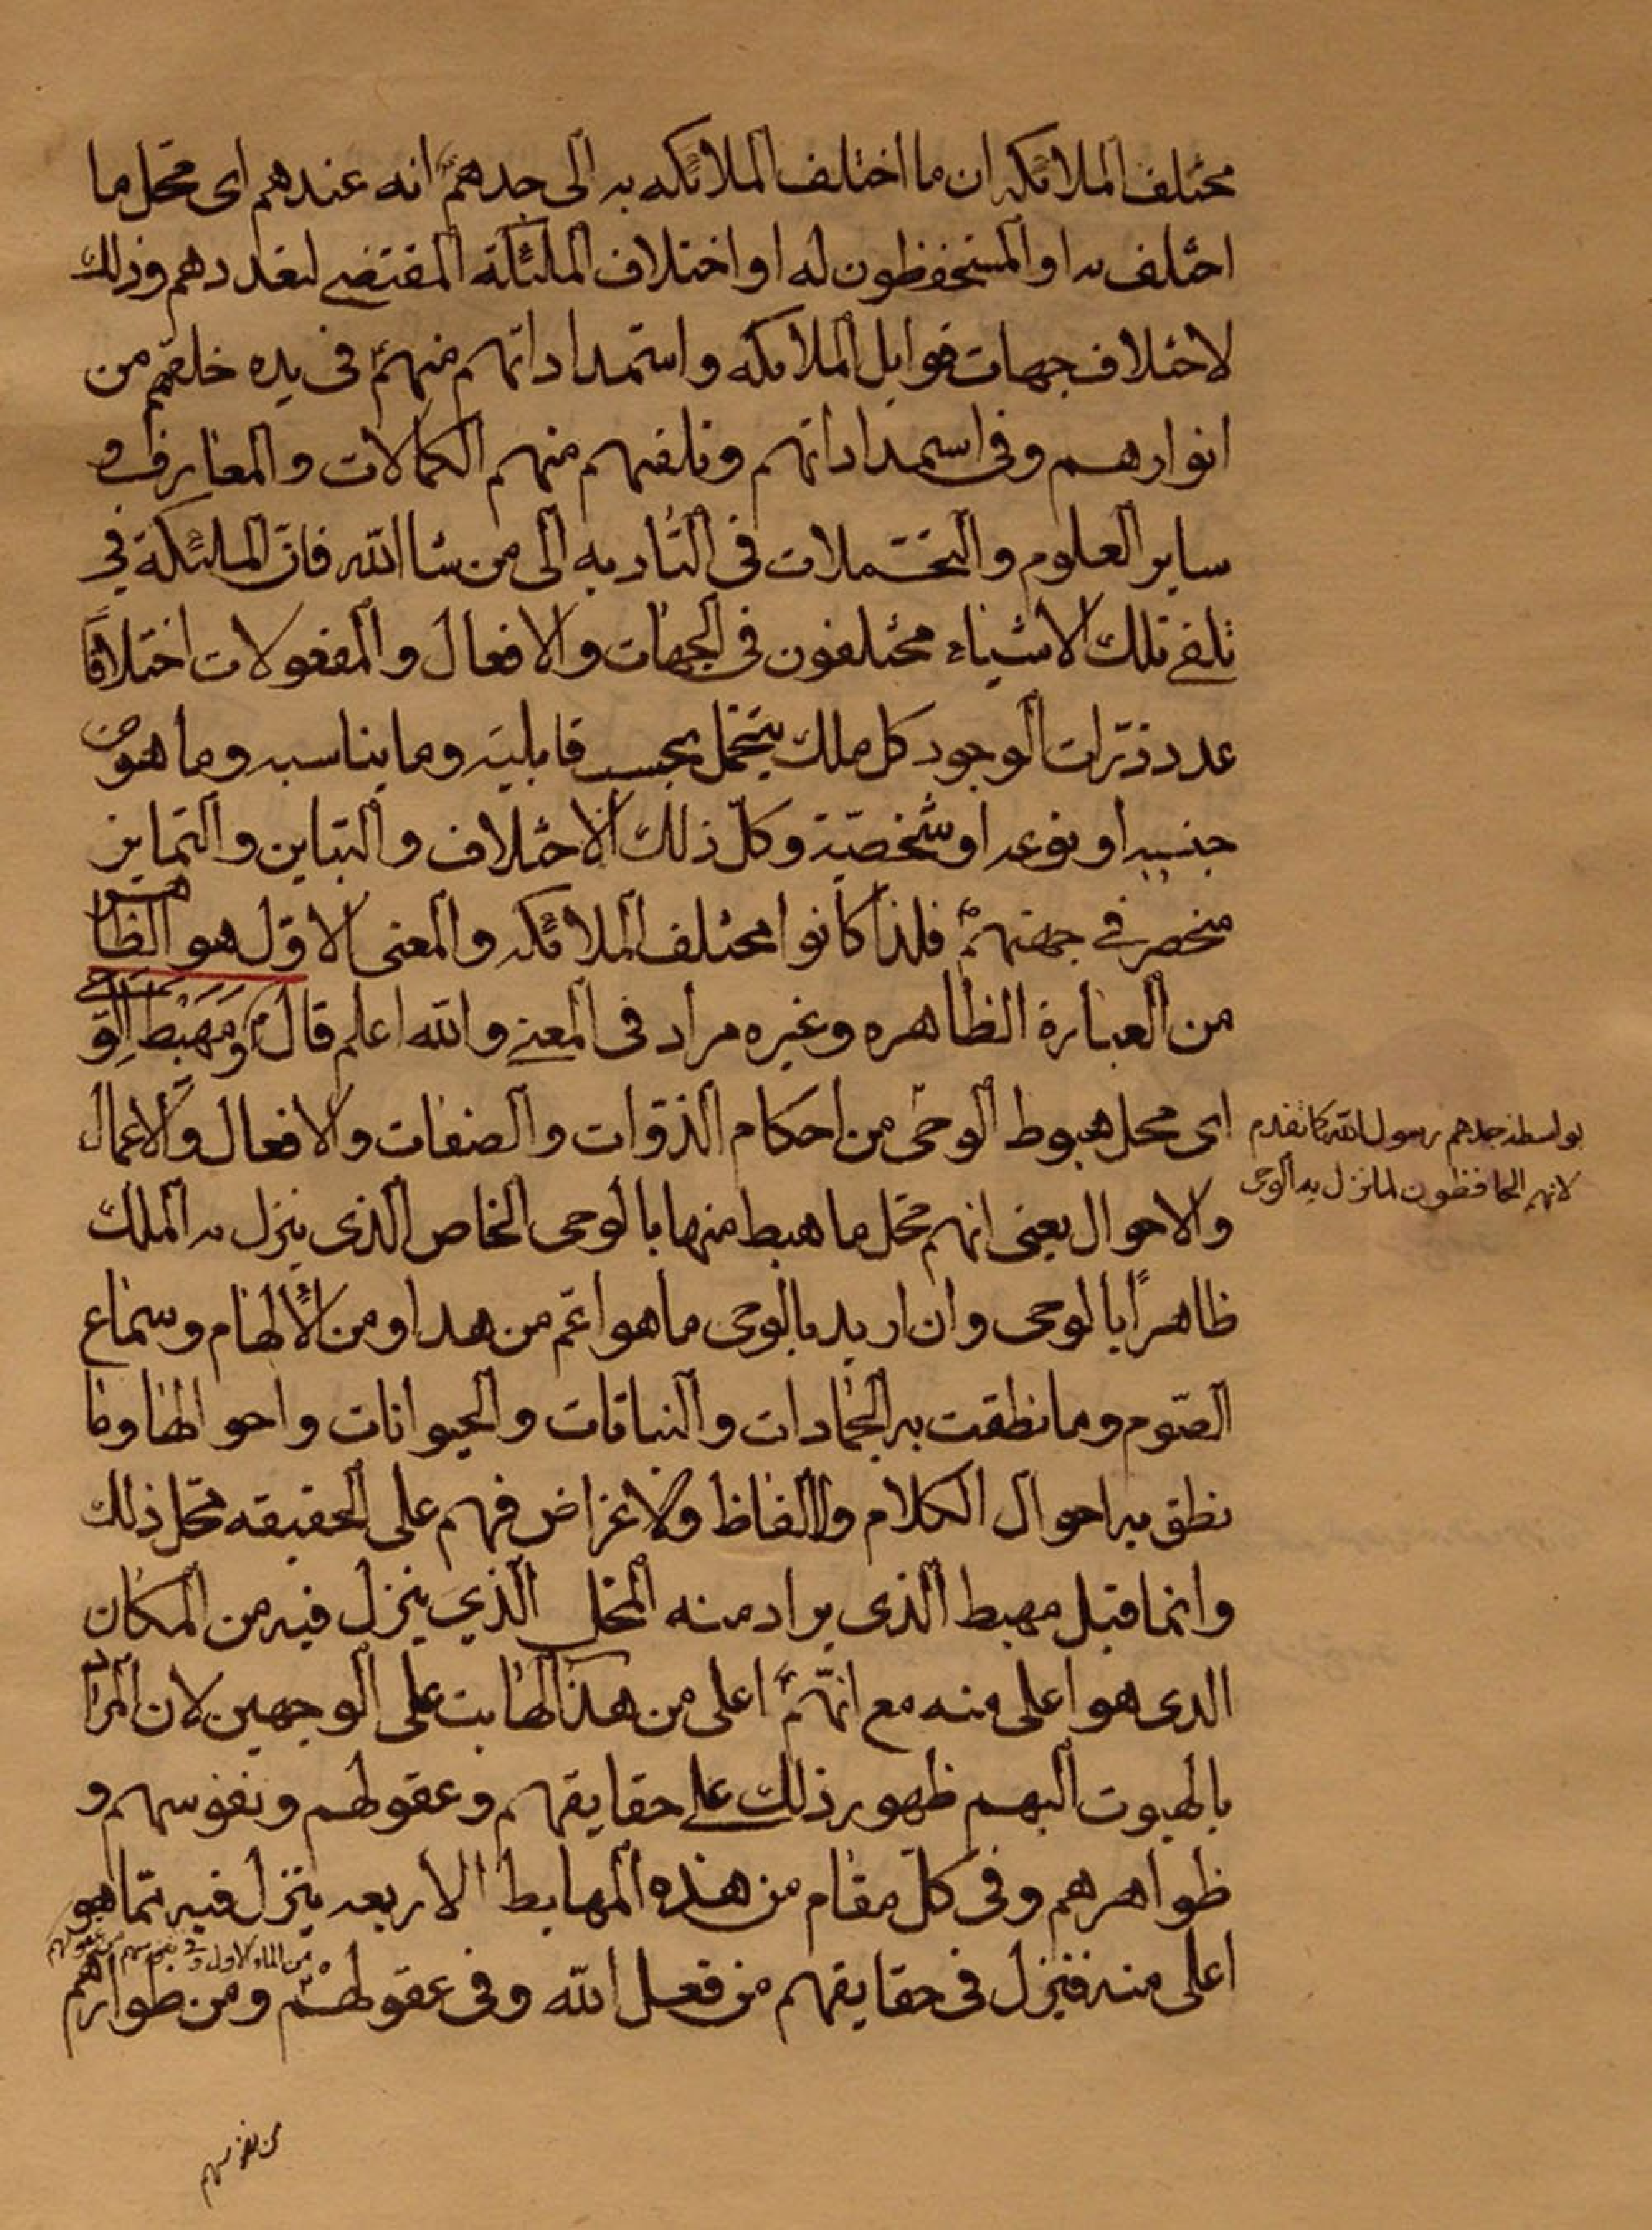 مختلف الملائكه ان ما اختلف الملائكه به الى جدهم انه عندهم اى محل ما
اختلف به او المستحفظون له او اختلاف الملئكة المقتضى لتعددهم وذلك
لاختلاف جهات قوابل الملائكه واستمداداتهم منهم فى بدء خلقهم من
انوارهم وفى استمداداتهم وتلقيهم منهم الكمالات والمعارف و
ساير العلوم والتحملات فى التاديه الى من شا الله فان الملئكة فى
تلقى تلك الاشياء مختلفون فى الجهات والافعال والمفعولات اختلافاً
عدد ذرّات الوجود كل ملك يتحمل بحسب قابليته وما يناسبه وما هو من
جنسه او نوعه او شخصيّته وكلّ ذلك الاختلاف والتباين والتمايز
منحصر فى جهتهم فلذا كانوا مختلف الملائكه والمعنى الاوّل هو الظاهر
من العبارة الظاهره وغيره مراد فى المعنى والله اعلم قال ومَهبَط الوَحى
اى محل هبوط الوحى من احكام الذوّات والصفات والافعال والاعمال
بواسطة جدهم رسول الله كما تقدم
لانهم الحافظون لما نزل به الوحى
والاحوال يعنى انهم محل ما هبط منها بالوحى الخاص الذى ينزل به الملك
ظاهراً بالوحى وان اريد بالوحى ما هو اعّم من هذا ومن الالهام وسماع
الصّوم وما نطقت به الجمادات والنباتات والحيوانات واحوالها وما
نطق به احوال الكلام والالفاظ والاغراض فهم على الحقيقه محل ذلك
وانما قيل مهبط الذى يراد منه المحل الذي ينزل فيه من المكان
الذى هو اعلى منه مع انّهم اعلى من هذا الهابت على الوجهين لان المراد
بالهبوت اليهم ظهور ذلك على حقايقهم وعقولهم ونفوسهم و
ظواهرهم وفى كلّ مقام من هذه المهابط الاربعه ينزل فيه مما هو
اعلى منه فينزل فى حقايقهم من فعل الله وفى عقولهم ومن ظواهرهم
من الماء الاول وفى نفوسهم من عقولهم
من نفوسهم